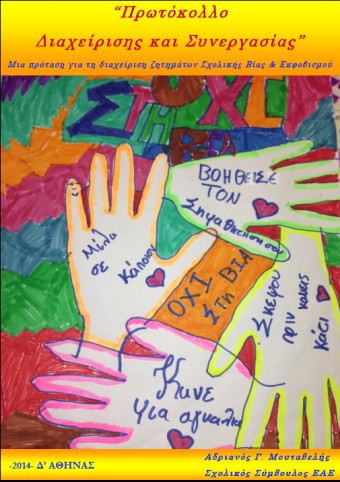 “Πρωτόκολλο
Διαχείρισης και Συνεργασίας”
Μια πρόταση για τη διαχείριση ζητημάτων Σχολικής Βίας & Εκφοβισμού
ΟΧΙ
ΣΤΗ
ΒΟΗΘΕΙΣΕ
ΤΟΝ
Μίλα
σε
Κάποιον
ΟΧΙ
ΣΤη ΒΙΑ
Σκεψου
πριν κανεις
κατι
Κανε
μια αγκαλια
-2014- Δ’ ΑΘΗΝΑΣ
Αδριανός Γ. Μουταβελής
Σχολικός Σύμβουλος ΕΑΕ